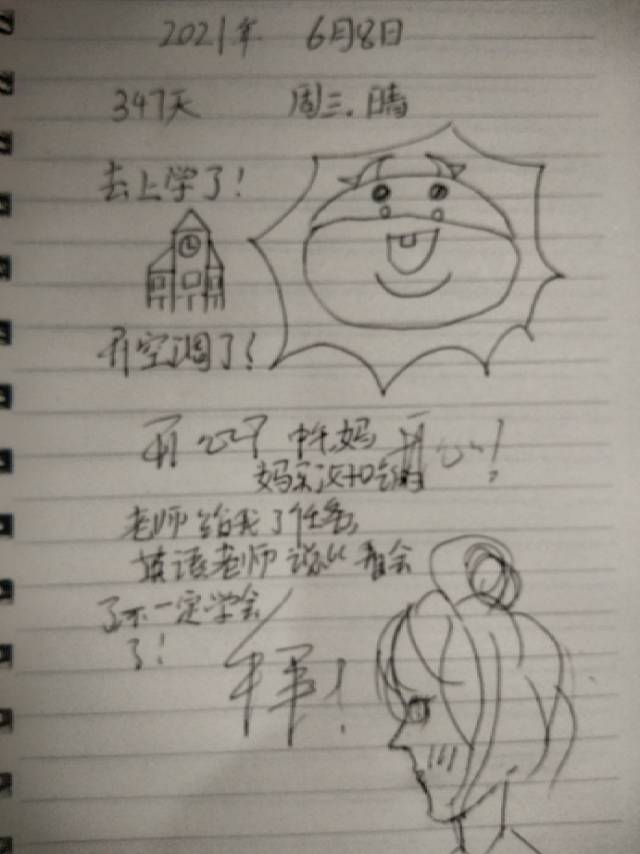 2021年 6月8日
347天 周三.晴
去上学了!
开空调了!
开心了 妈 开心!
妈买汉
老师给我了任务,
英语老师说以 看会
了不一定学会
了!
!